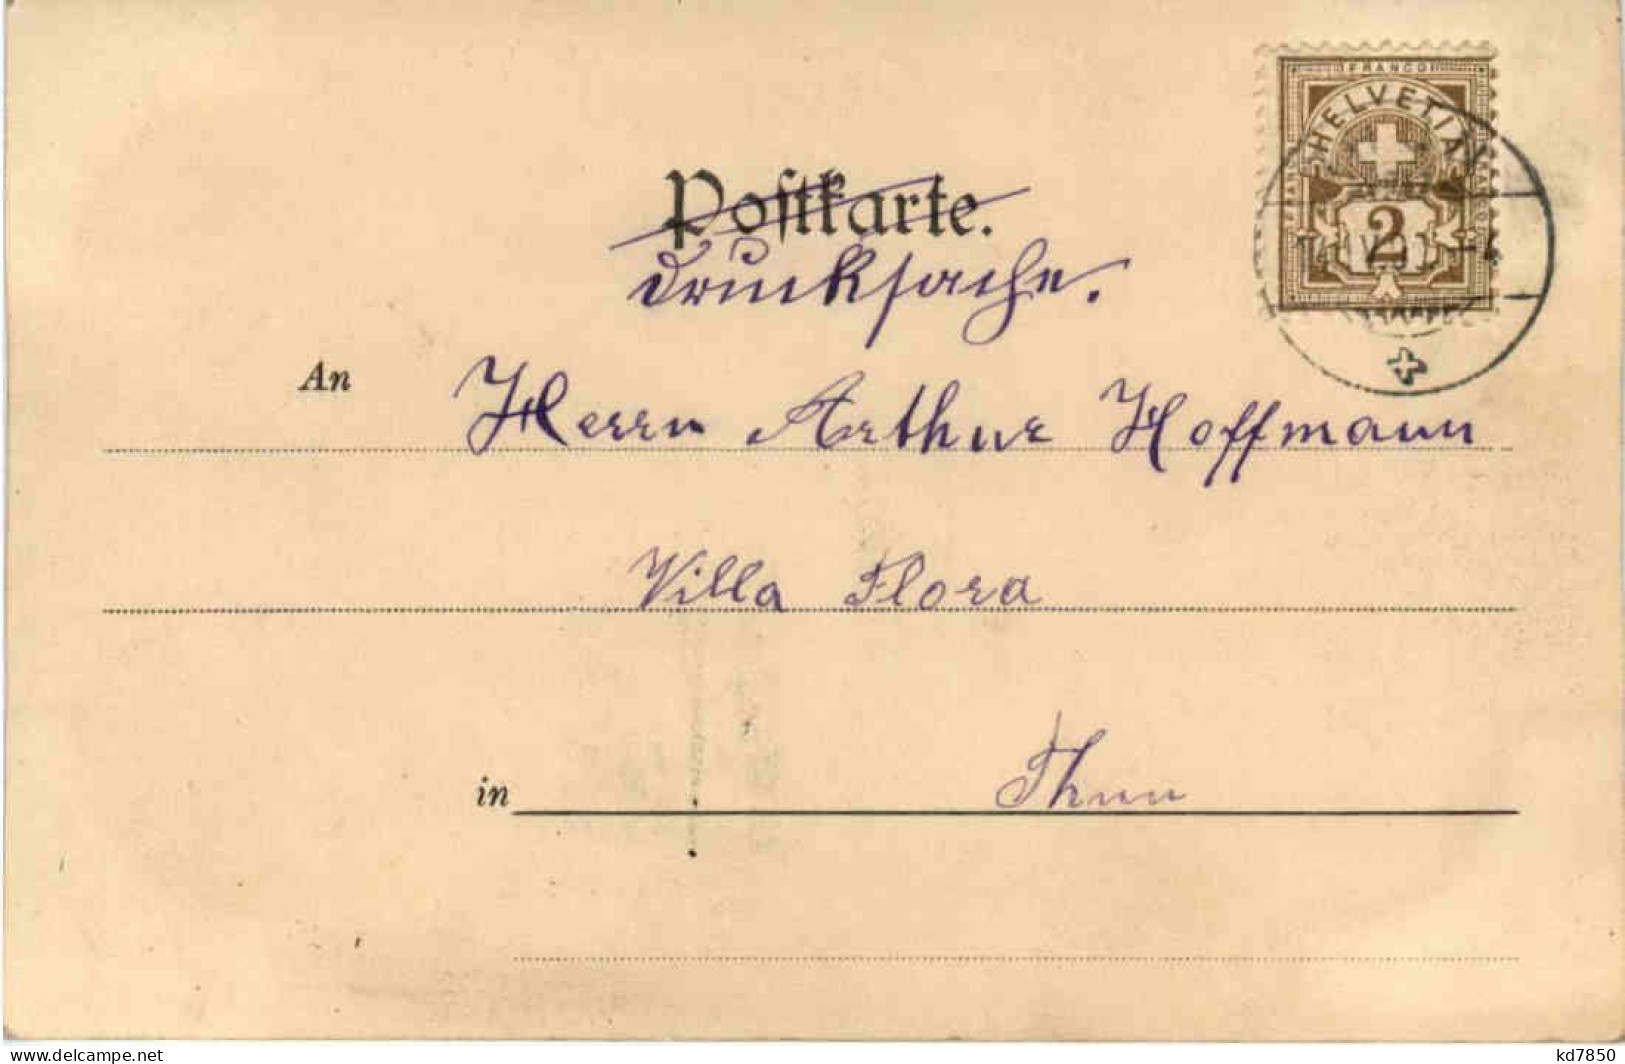 FRANCO
HELVETIA
2
Postkarte.
Drucksache.
An Herrn Arthur Hoffmann
Villa Flora
in Thun
www.delcampe.net
kd7850